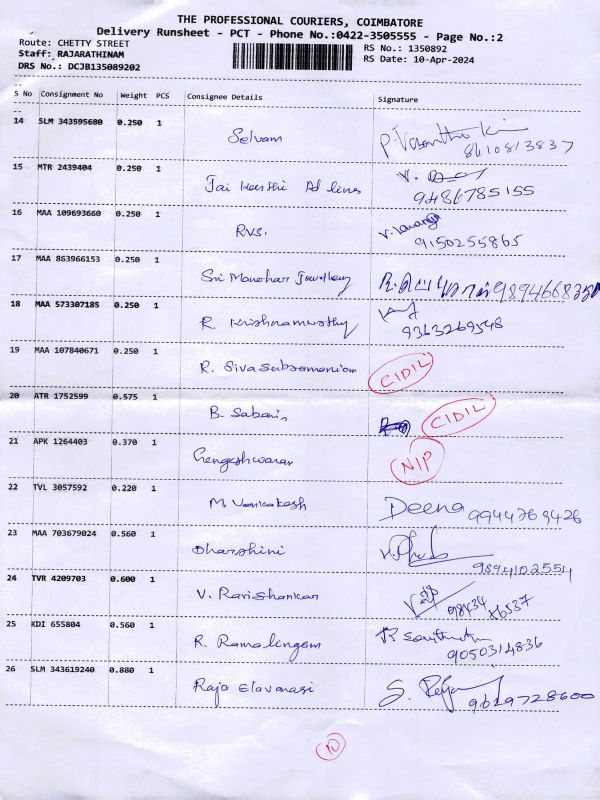 THE PROFESSIONAL COURIERS, COIMBATORE
Delivery Runsheet - PCT - Phone No.:0422-3505555 - Page No.:2
Route: CHETTY STREET RS No.: 1350892
Staff: RAJARATHINAM RS Date: 10-Apr-2024
DRS No.: DCJB135089202
S No Consignment No Weight PCS Consignee Details Signature
14 SLM 343595680 0.250 1
Selvam
8610813837
15 MTR 2439404 0.250 1
Jai Harshi Ad lines
9486785155
16 MAA 109693660 0.250 1
RVS.
9150255865
17 MAA 863966153 0.250 1
Sri Manohar Jewellery 9894668350
18 MAA 573307185 0.250 1
R. Krishnamurthy
9363269548
19 MAA 107840671 0.250 1
R. Sivasubramaniam CIDIL
20 ATR 1752599 0.575 1
B. Sabari CIDIL
21 APK 1264403 0.370 1
Gengeshwaran NIP
22 TVL 3057592 0.220 1
M. Venkatesh Deena 9944769426
23 MAA 703679024 0.560 1
Dharshini
9894102554
24 TVR 4209703 0.600 1
V. Ravishankar 98434 76537
25 KDI 655804 0.560 1
R. Ramalingam
9050314836
26 SLM 343619240 0.880 1
Raja Elavarasi 9629728600
10